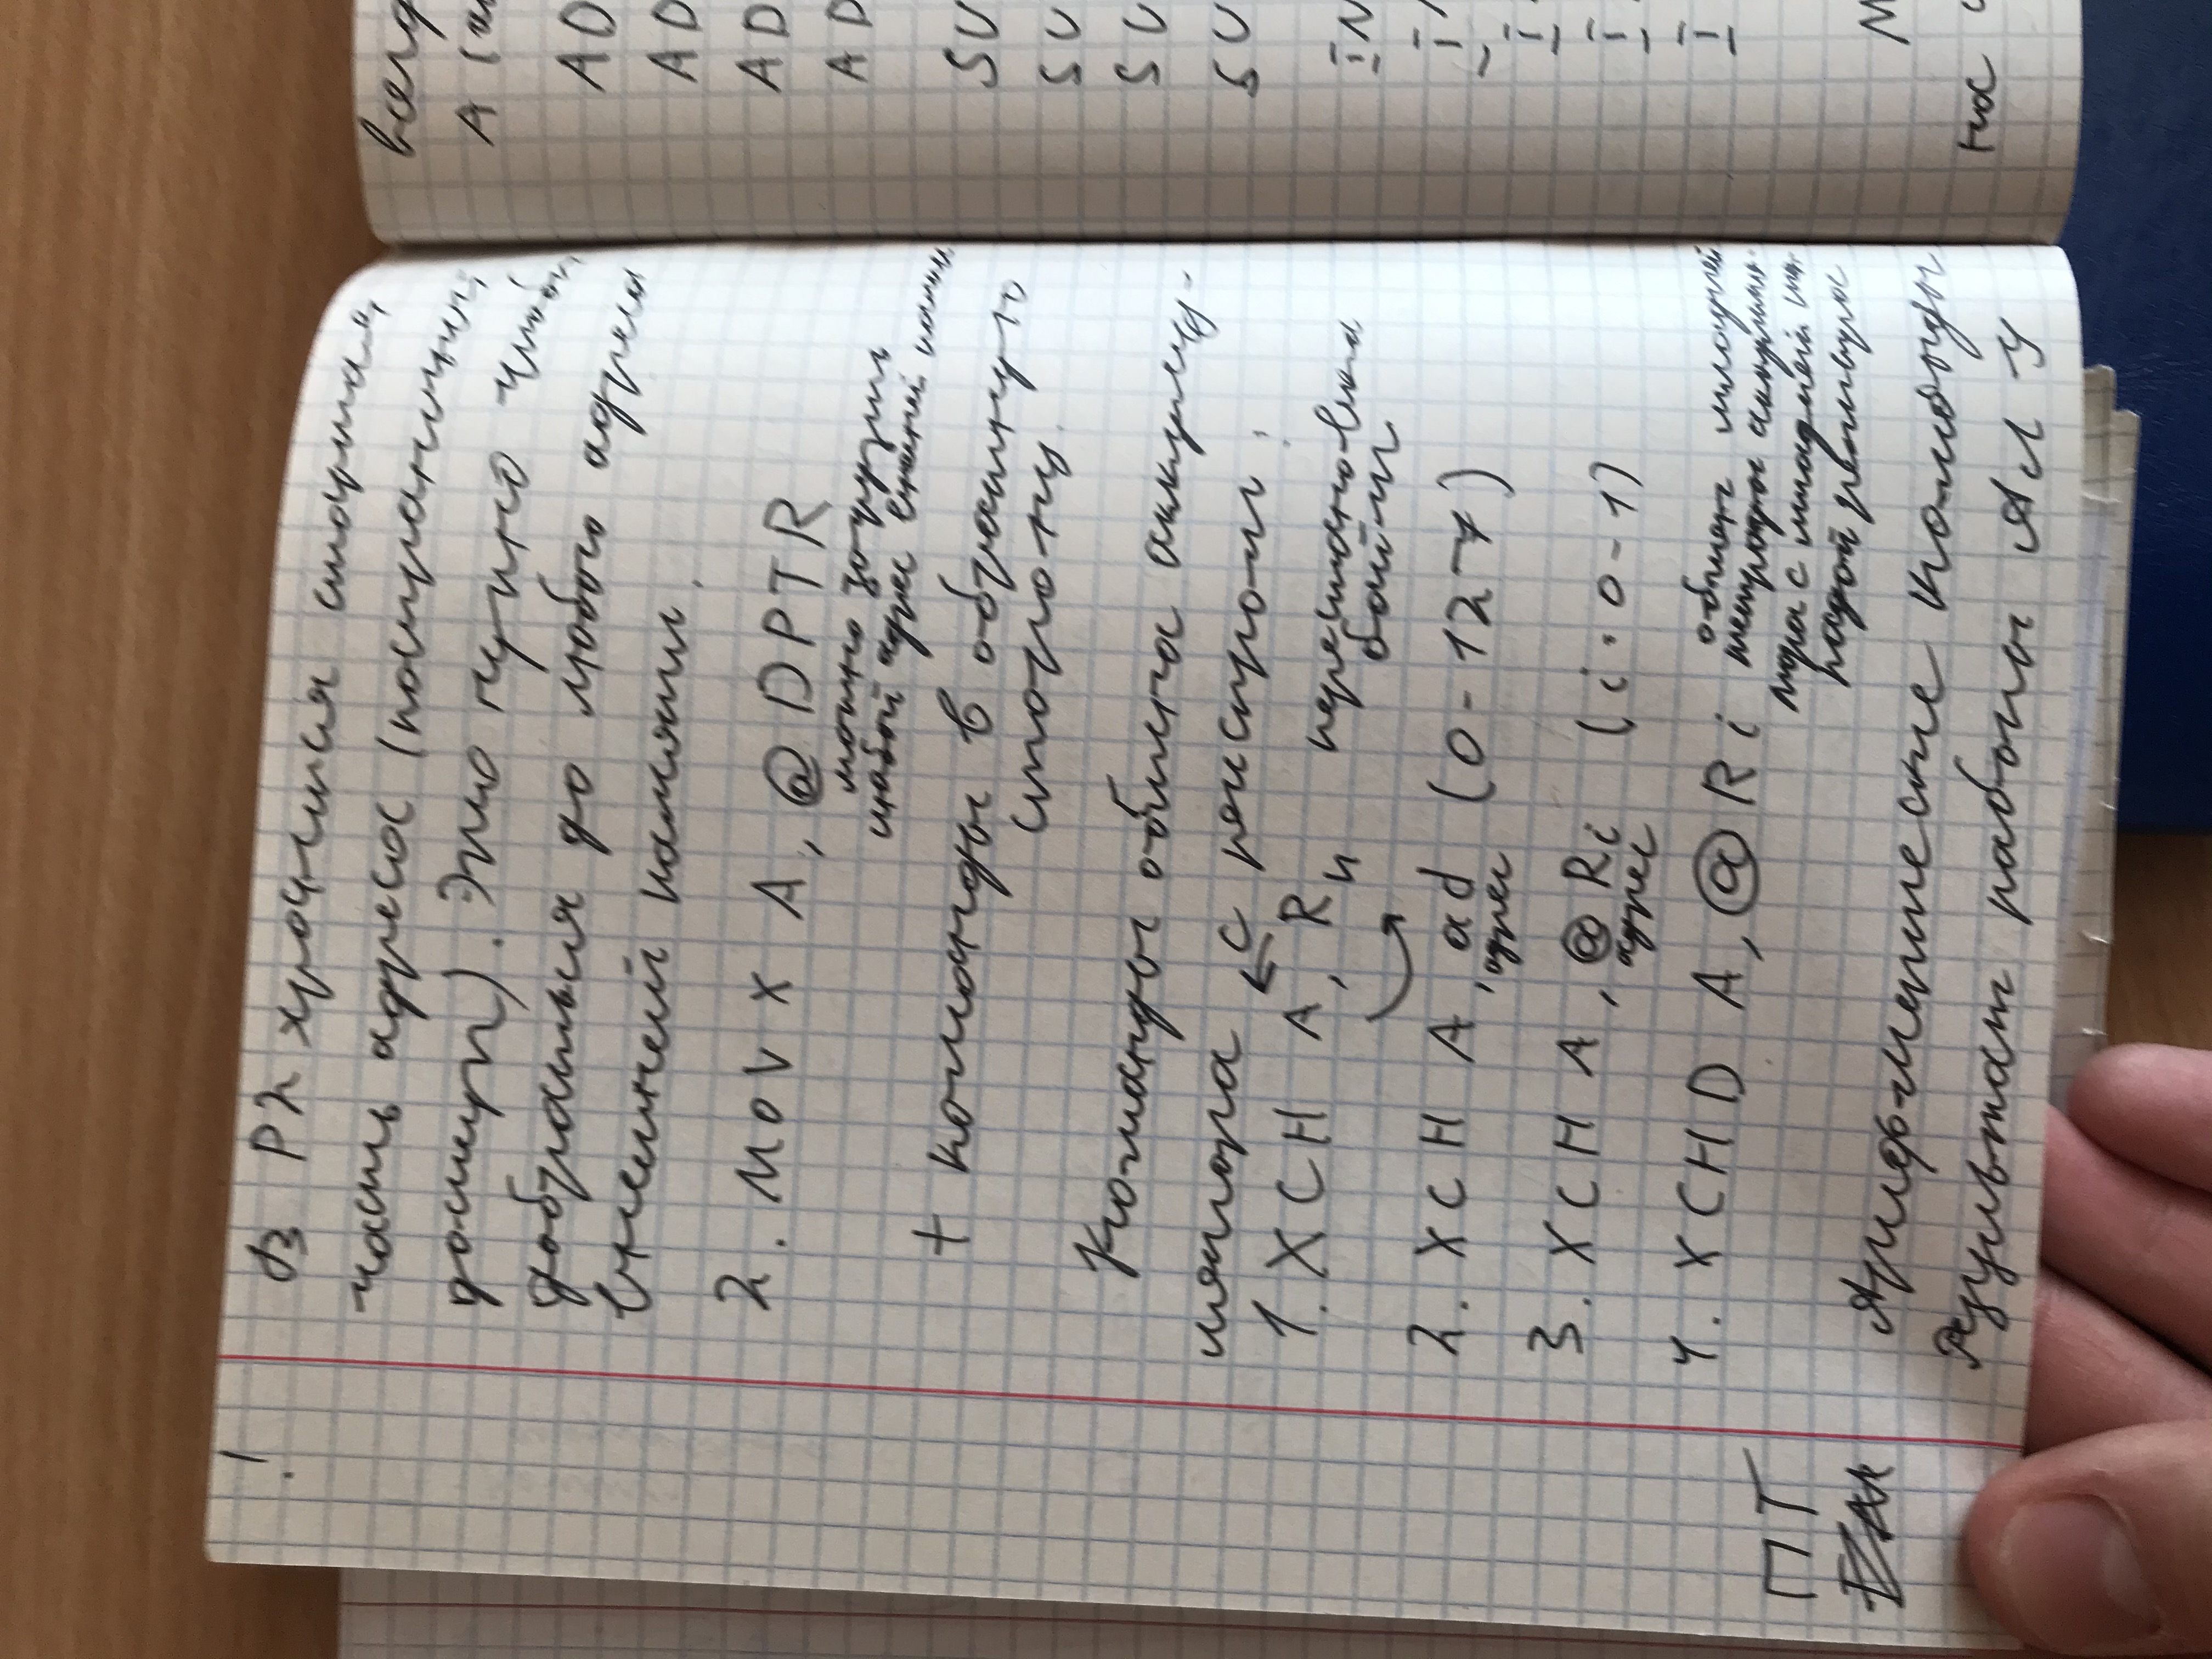 ! В P2 хранится старшая
часть адреса (постраничный
доступ). Это нужно чтобы
добраться до любого адреса
внешней памяти.
2. MOVX A, @DPTR
можно загрузить
любой адрес внешней памяти
+ команды в обратную
сторону.
Команды обмена аккуму-
лятора с регистром:
1. XCH A, Rn перестановка
байти
2. XCH A, ad (0-127)
адрес
3. XCH A, @Ri (i·0-1)
адрес
4. XCHD A, @Ri обмен младшей
тетрады аккумуля-
тора с младшей тет-
радой регистра
ПТ
Арифметические команды
Результат работы АЛУ
всегд
A (
AD
AD
AD
AD
SU
SU
SU
SU
IN
I
I
I
I
M
на